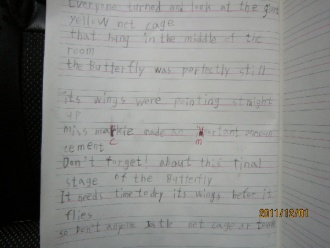 Everyone turned and look at the giant
yellow net cage
that hung in the middle of the
room
the butterfly was perfectly still
its wings were pointing straight
up
Miss made an announ
cement
Don't forget! about this final
stage of the Butterfly
It needs time to dry its wings before it
flies
so don't anyone net cage or touch
2011/12/01